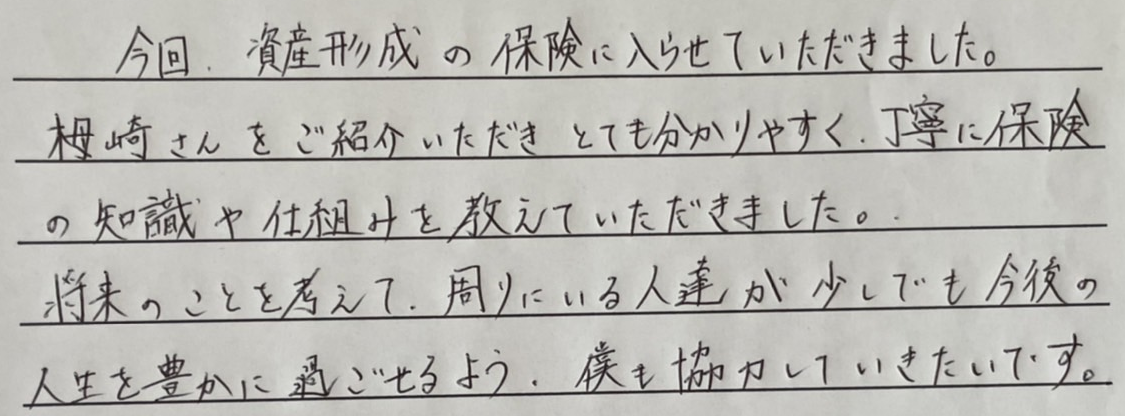 今回、資産形成の保険に入らせていただきました。
栂崎さんをご紹介いただきとても分かりやすく、丁寧に保険
の知識や仕組みを教えていただきました。
将来のことを考えて、周りにいる人達が少しでも今後の
人生を豊かに過ごせるよう、僕も協力していきたいです。